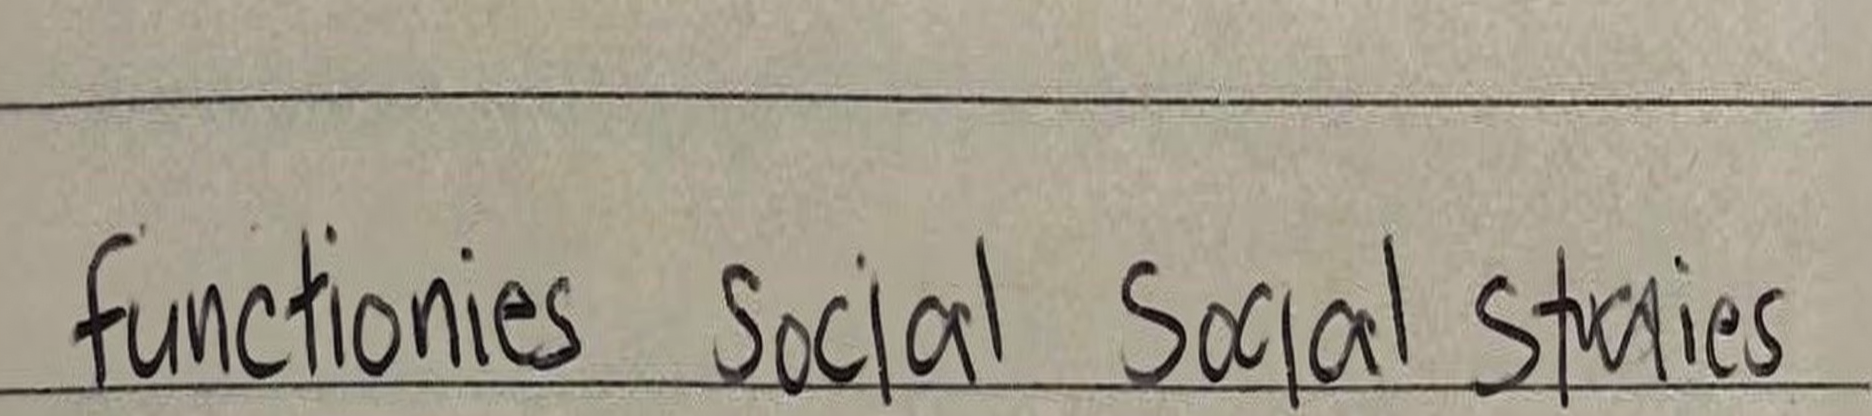 functionies social Social studies